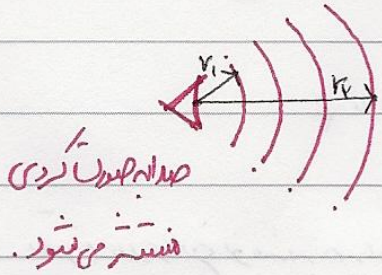 r₁
r₂
صدا به صورت کروی
منتشر می شود.